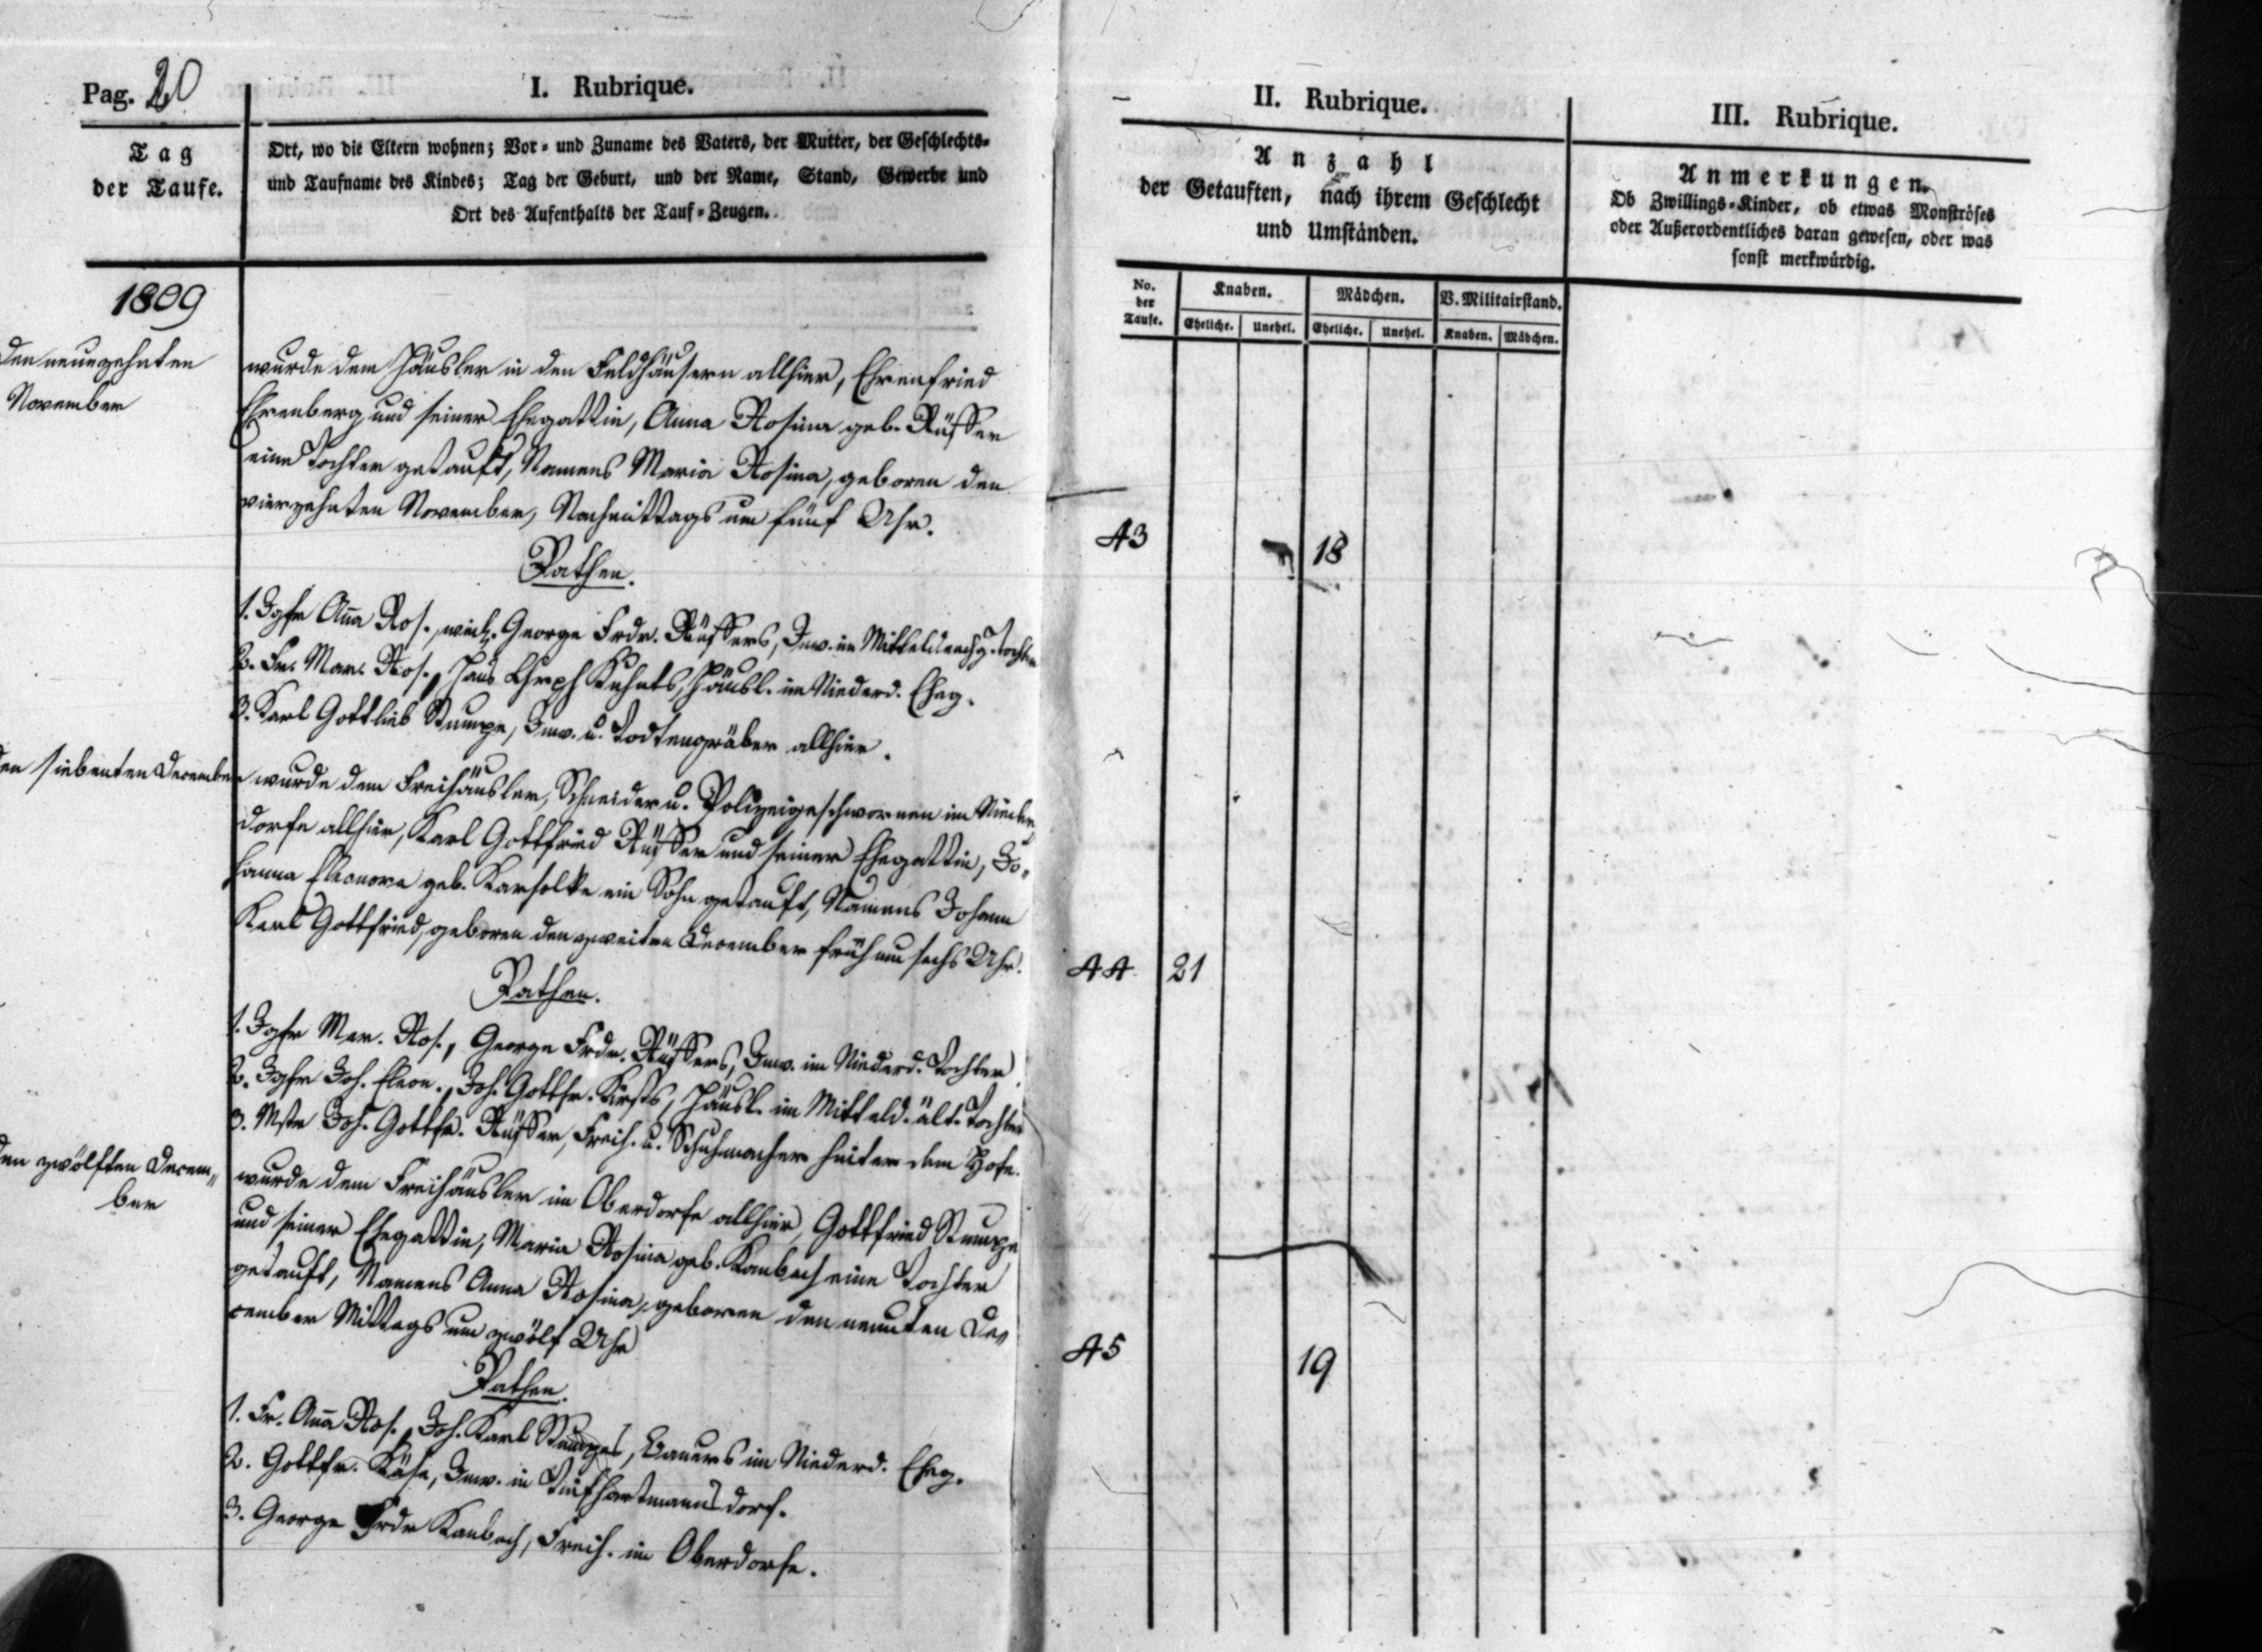 Pag. 20
I. Rubrique.
Tag
der Taufe.
Ort, wo die Eltern wohnen; Vor- und Zuname des Vaters, der Mutter, der Geschlechts-
und Taufname des Kindes; Tag der Geburt, und der Name, Stand, Gewerbe und
Ort des Aufenthalts der Tauf-Zeugen.
1809
den neunzehnten
November
wurde dem Häusler in den Feldhäusern allhier, Ehrenfried
Ehrenberg und seiner Ehegattin, Anna Rosina geb. Rüffer
eine Tochter getauft, Namens Maria Rosina, geboren den
vierzehnten November, Nachmittags um fünf Uhr.
Pathen.
1. Igfr Aña Ros., weil. George Frdr. Rüffers, Inw. im Tochter
2. Fr. Mar. Ros., Hans Chrph Kuhnts, Häusl. im Niederd. Eheg.
3. Karl Gottlieb Stumpe, Inw. u. Todtengräber allhier.
den siebenten December
wurde dem Freihäusler, Schneider u. Polizeigeschwornen im Nieder
dorfe allhier, Karl Gottfried Rüffer und seiner Ehegattin, Jo-
hanna Eleonora geb. ein Sohn getauft, Namens Johann
Karl Gottfried, geboren den zweiten December früh um sechs Uhr.
Pathen.
1. Igfr Mar. Ros., George Frdr. Rüffers, Inw. im Niederd. Tochter
2. Igfr Joh. Eleon., Joh. Gottfr. Häusl. im Mitteld. ält. Tochter
3. Mstr Joh. Gottfr. Rüffer, Freih. u. Schuhmacher hinter dem Hofe.
den zwölften Decem-
ber
wurde dem Freihäusler im Oberdorfe allhier, Gottfried Stumpe
und seiner Ehegattin, Maria Rosina geb. Kambach eine Tochter
getauft, Namens Anna Rosina, geboren den neunten De-
cember Mittags um zwölf Uhr
Pathen.
1. Fr. Aña Ros., Joh. Karl Stumpes, Bauers im Niederd. Eheg.
2. Gottfr. Käse, Inw. in Tiefhartmannsdorf.
3. George Frdr Kambach, Freih. im Oberdorfe.
II. Rubrique.
Anzahl
der Getauften, nach ihrem Geschlecht
und Umständen.
No. der Taufe.
Knaben.
Mädchen.
V. Militairstand.
Eheliche. Unehel. Eheliche. Unehel. Knaben. Mädchen.
43 18
44 21
45 19
III. Rubrique.
Anmerkungen.
Ob Zwillings-Kinder, ob etwas Monströses
oder Außerordentliches daran gewesen, oder was
sonst merkwürdig.